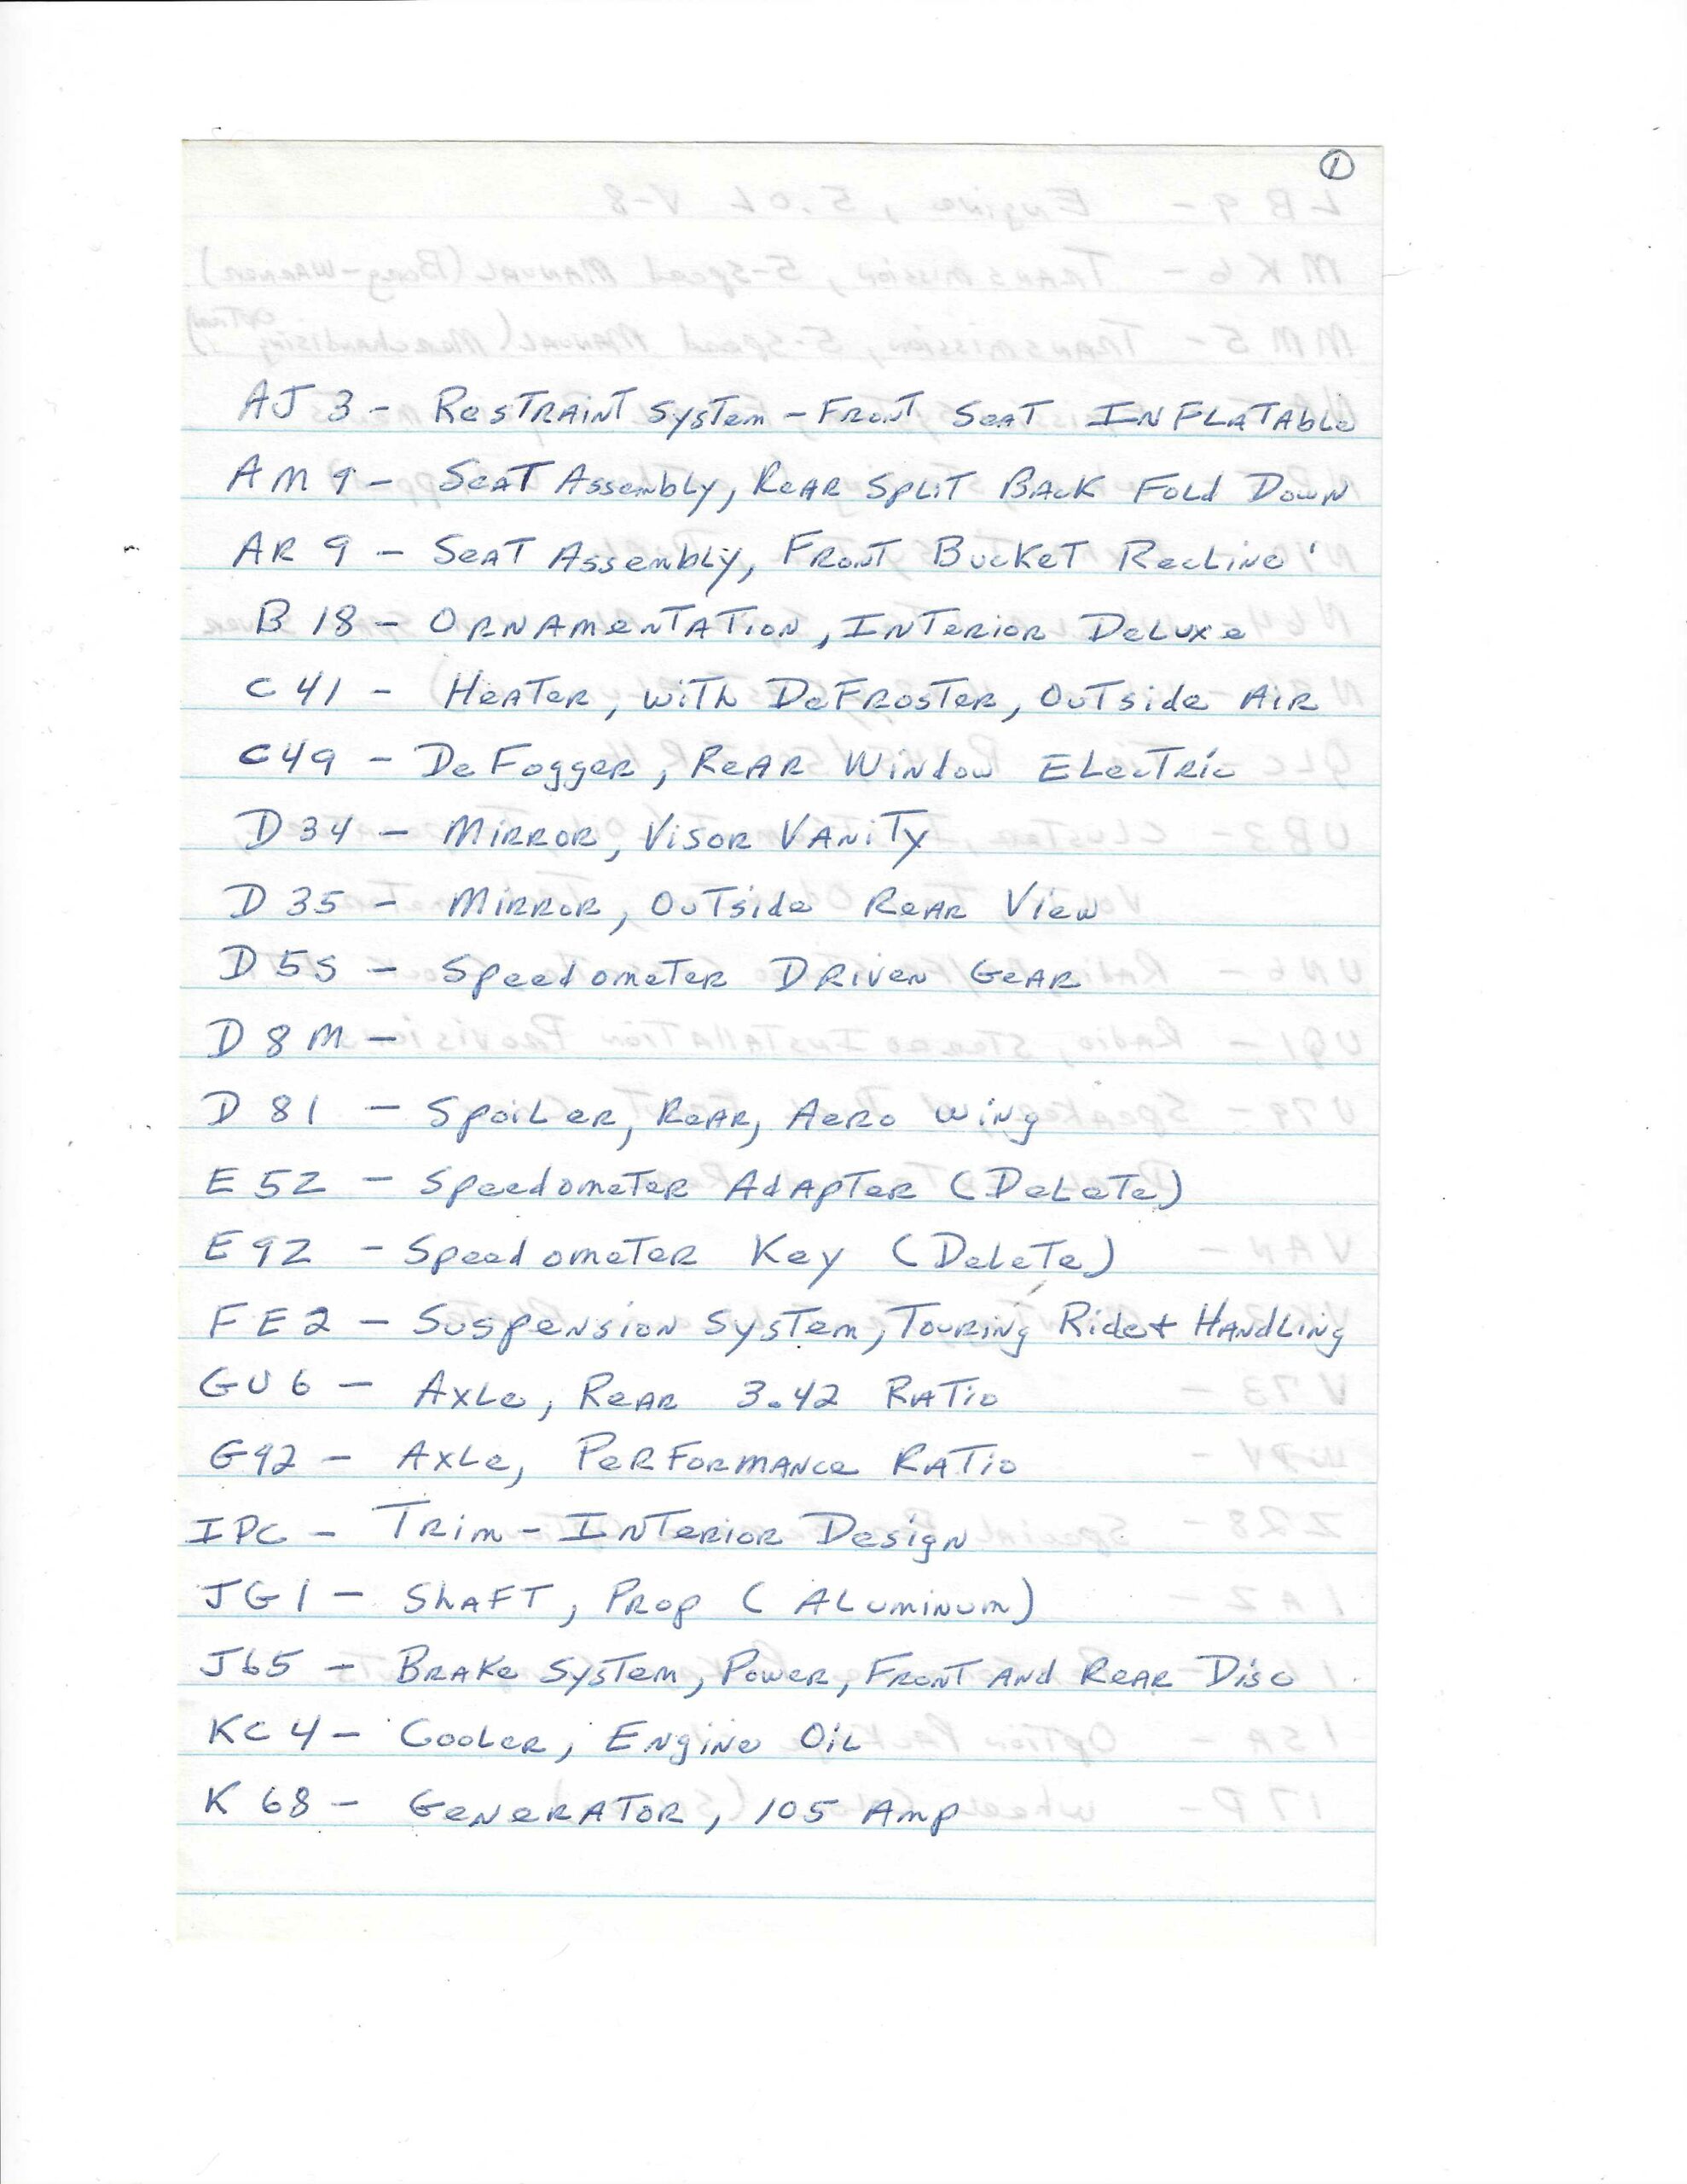 ①
AJ3 - Restraint System - Front Seat Inflatable
AM9 - Seat Assembly, Rear Split Back Fold Down
AR9 - Seat Assembly, Front Bucket Recline
B18 - Ornamentation, Interior Deluxe
C41 - Heater, with Defroster, Outside Air
C49 - Defogger, Rear Window Electric
D34 - Mirror, Visor Vanity
D35 - Mirror, Outside Rear View
D5S - Speedometer Driven Gear
D8M -
D81 - Spoiler, Rear, Aero Wing
E52 - Speedometer Adapter (Delete)
E92 - Speedometer Key (Delete)
FE2 - Suspension System, Touring Ride + Handling
GU6 - Axle, Rear 3.42 Ratio
G92 - Axle, Performance Ratio
IPC - Trim - Interior Design
JG1 - Shaft, Prop (Aluminum)
J65 - Brake System, Power, Front And Rear Disc
KC4 - Cooler, Engine Oil
K68 - Generator, 105 Amp